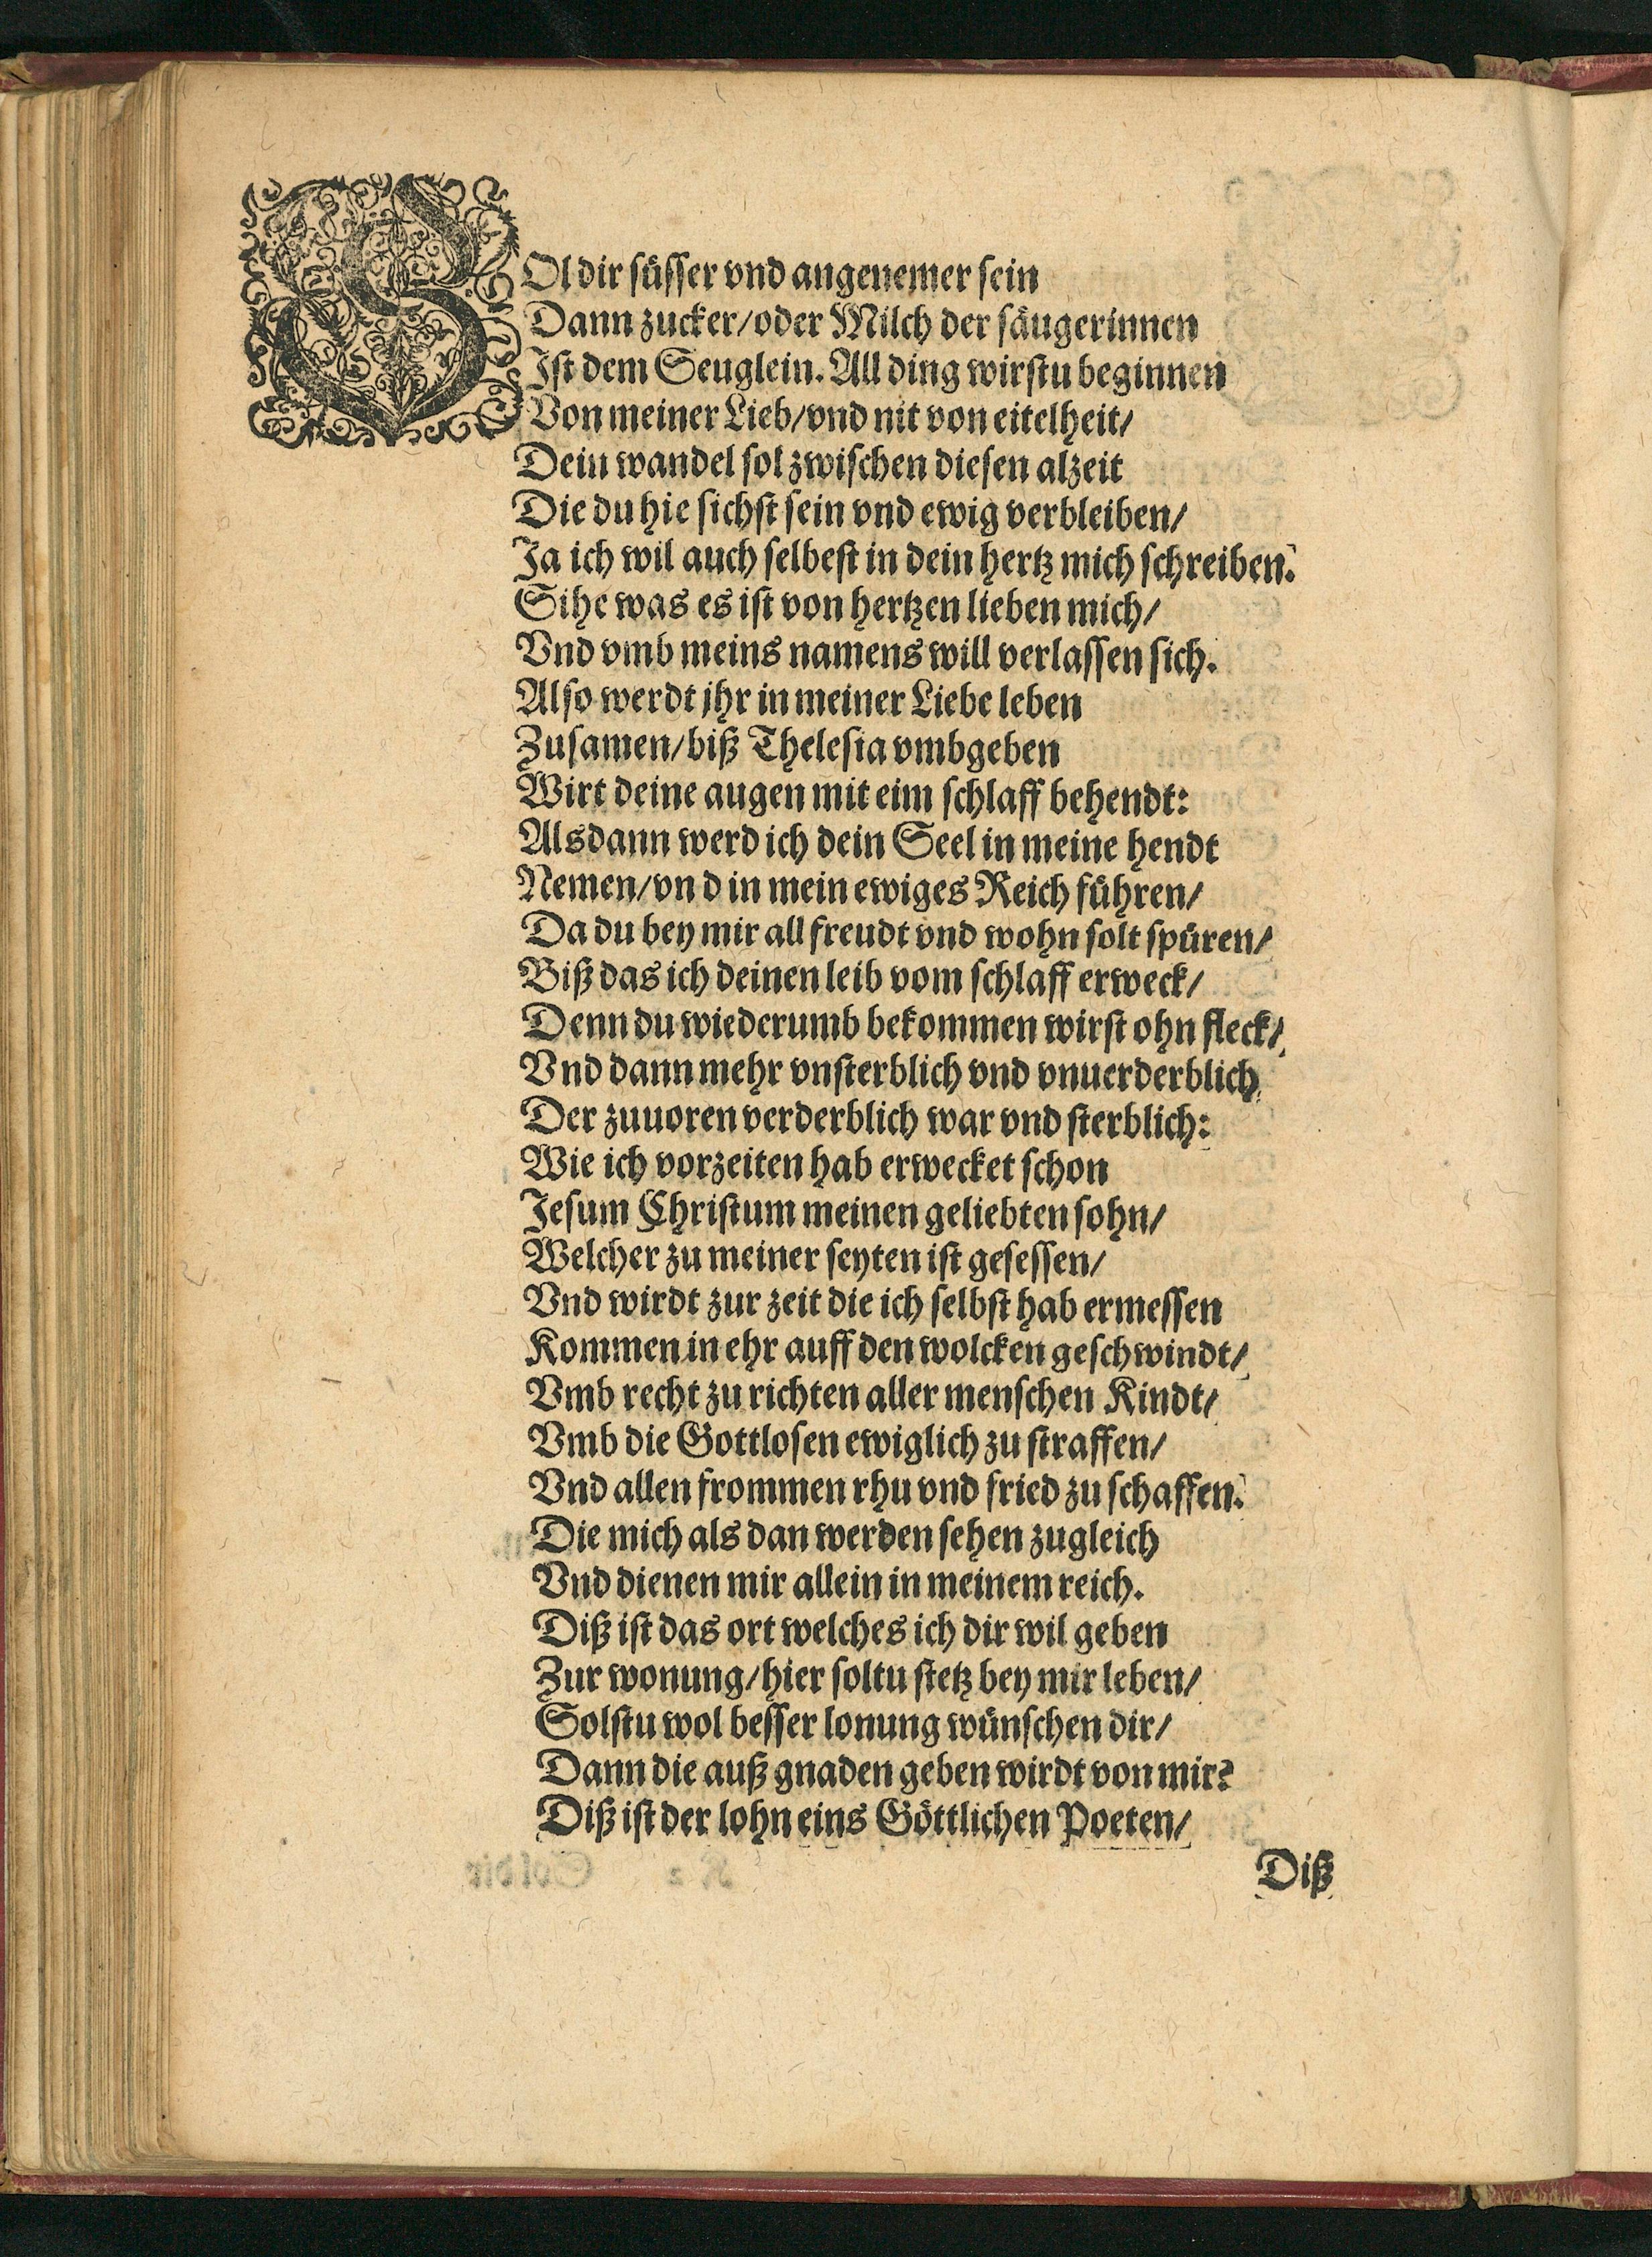 SOl dir süsser vnd angenemer sein
Dann zucker/oder Milch der säugerinnen
Ist dem Seuglein. All ding wirstu beginnen
Von meiner Lieb/vnd nit von eitelheit/
Dein wandel sol zwischen diesen alzeit
Die du hie sichst sein vnd ewig verbleiben/
Ja ich wil auch selbest in dein hertz mich schreiben.
Sihe was es ist von hertzen lieben mich/
Vnd vmb meins namens will verlassen sich.
Also werdt jhr in meiner Liebe leben
Zusamen/biß Thelesia vmbgeben
Wirt deine augen mit eim schlaff behendt:
Alsdann werd ich dein Seel in meine hendt
Nemen/vn d in mein ewiges Reich führen/
Da du bey mir all freudt vnd wohn solt spüren/
Biß das ich deinen leib vom schlaff erweck/
Denn du wiederumb bekommen wirst ohn fleck/
Vnd dann mehr vnsterblich vnd vnuerderblich
Der zuuoren verderblich war vnd sterblich:
Wie ich vorzeiten hab erwecket schon
Jesum Christum meinen geliebten sohn/
Welcher zu meiner seyten ist gesessen/
Vnd wirdt zur zeit die ich selbst hab ermessen
Kommen in ehr auff den wolcken geschwindt/
Vmb recht zu richten aller menschen Kindt/
Vmb die Gottlosen ewiglich zu straffen/
Vnd allen frommen rhu vnd fried zu schaffen.
Die mich als dan werden sehen zugleich
Vnd dienen mir allein in meinem reich.
Diß ist das ort welches ich dir wil geben
Zur wonung/hier soltu stetz bey mir leben/
Solstu wol besser lonung wünschen dir/
Dann die auß gnaden geben wirdt von mir?
Diß ist der lohn eins Göttlichen Poeten/
Diß